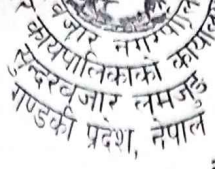 बजार नगरपालि
कार्यपालिकाको कार्याल
सुन्दरबजार लमजुङ
गण्डकी प्रदेश, नेपाल